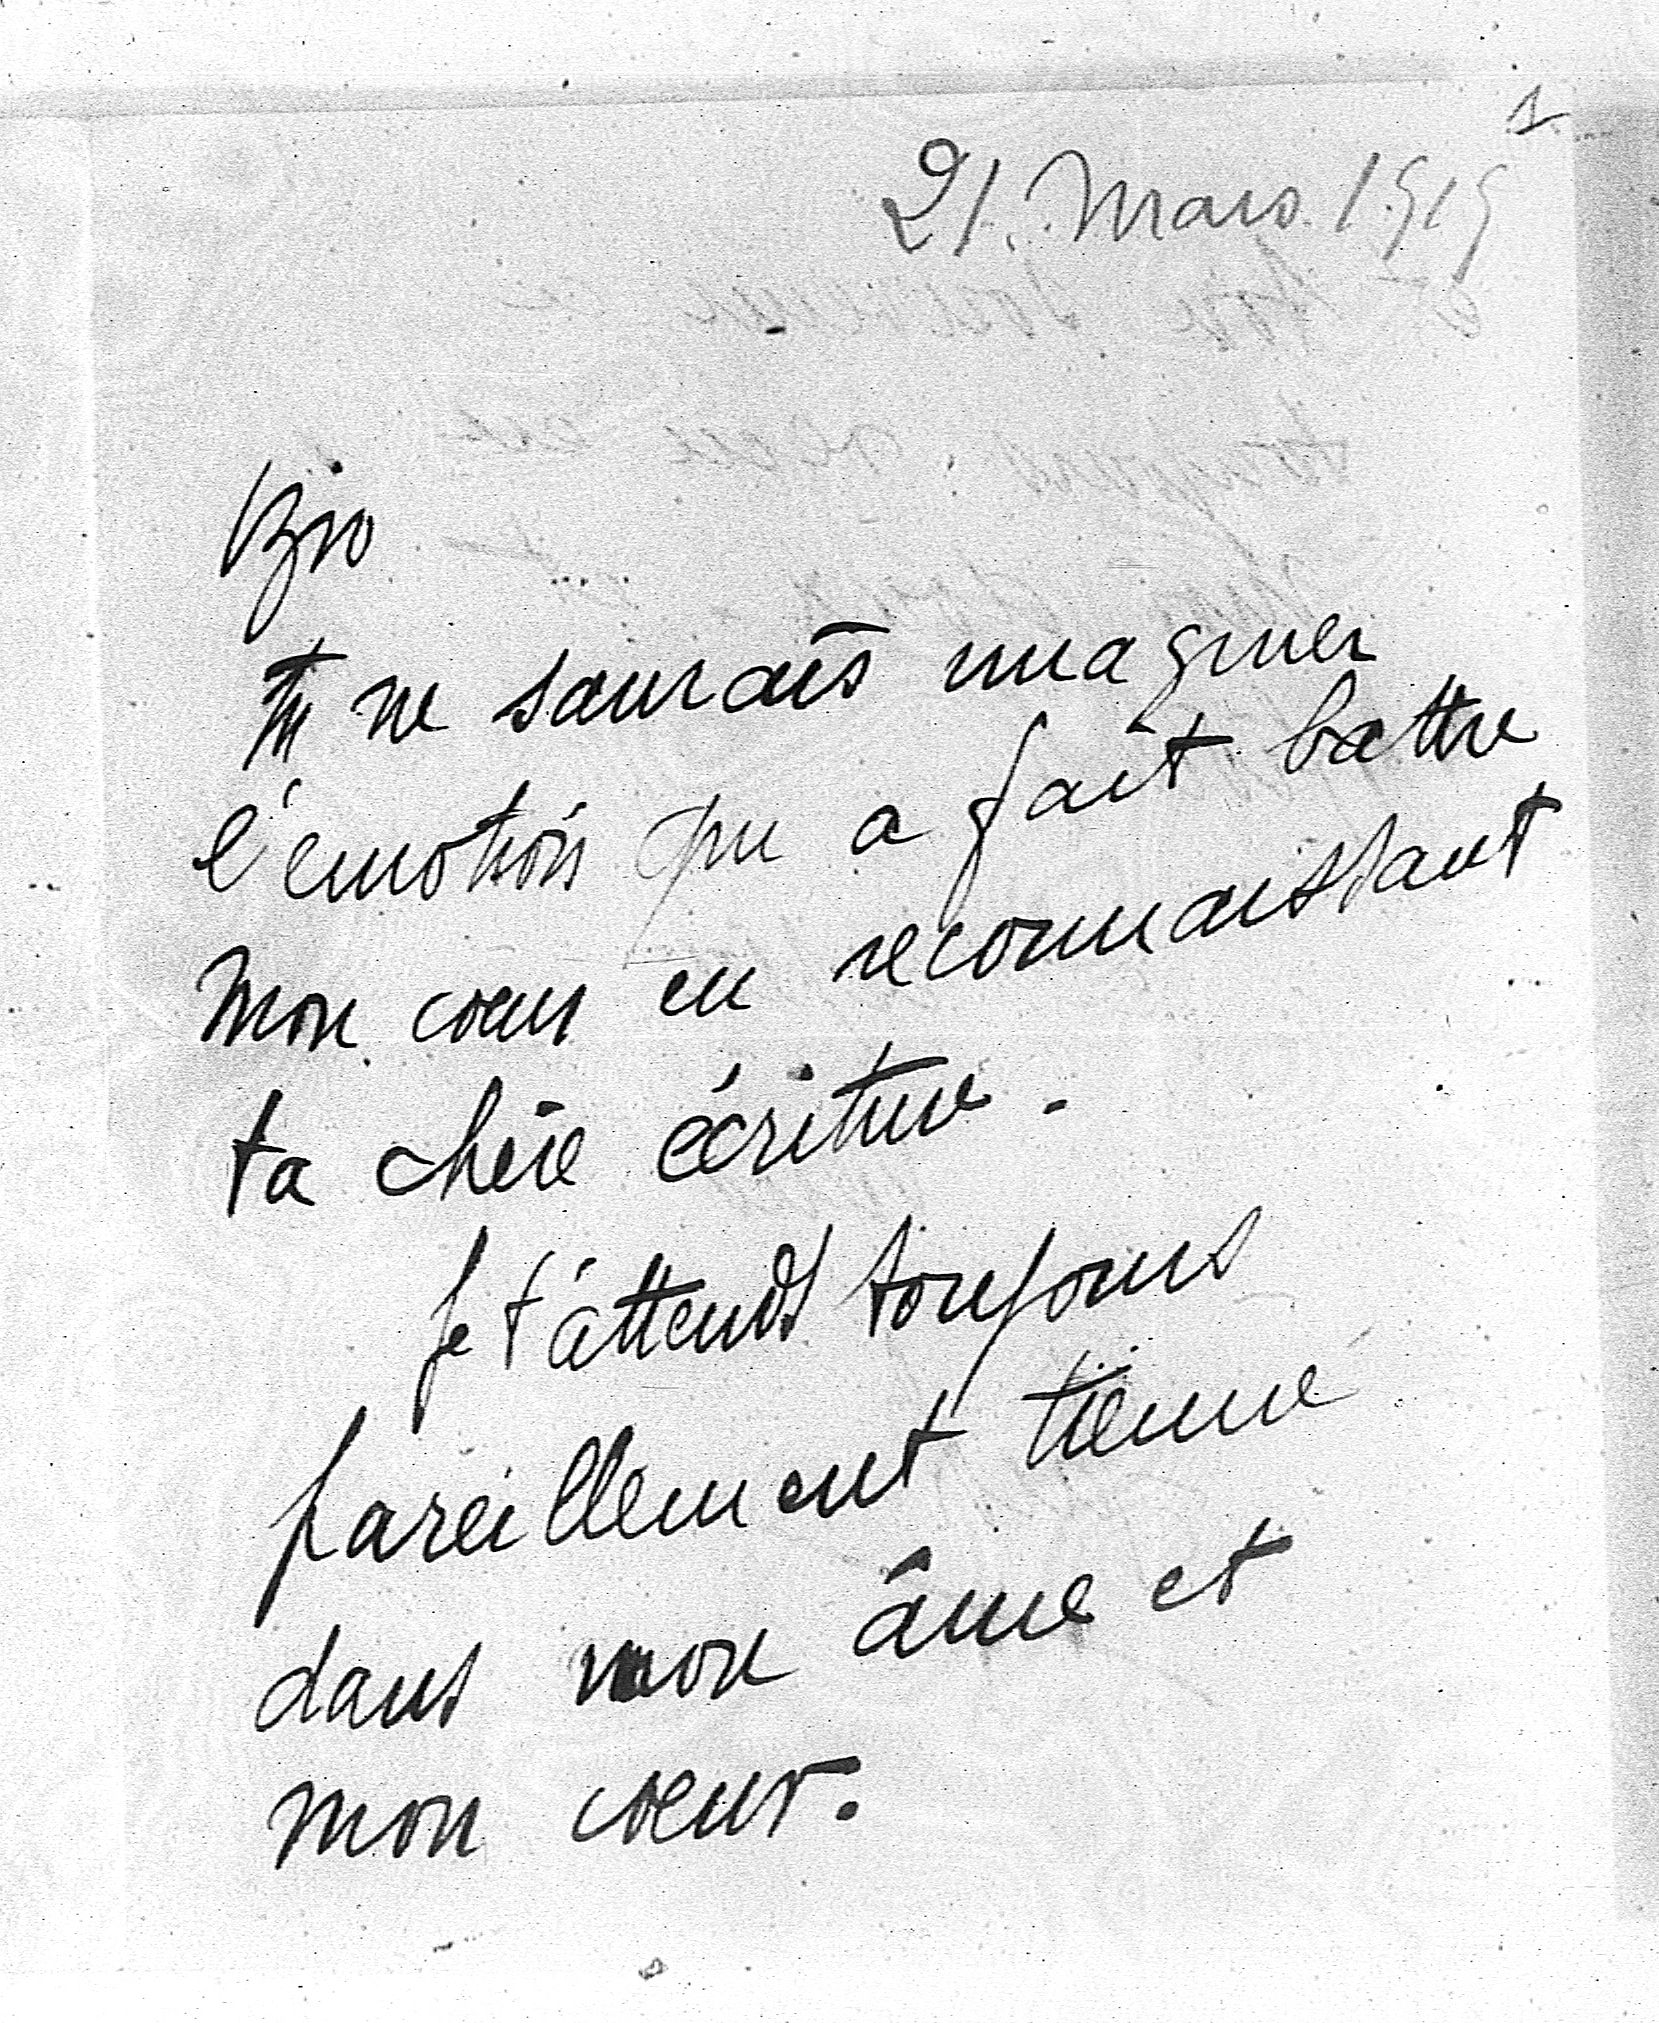 1
21. Mars. 1919
Bjo
Tu ne saurais imaginer
l'émotion qui a fait battre
mon coeur en reconnaissant
ta chère écriture.
Je t'attends toujours
pareillement tienne
dans mon âme et
mon coeur.